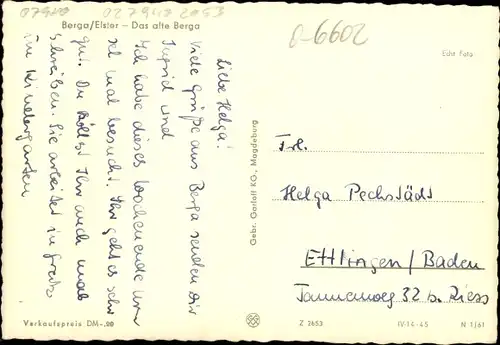 07980 027940 2053
Berga/Elster – Das alte Berga
0-6602
Echt Foto
Liebe Helga!
Viele Grüße aus Berga senden Dir
Ingrid und
Ich habe dieses Wochenende
mal besucht. Ihr geht es sehr
gut. Du sollst Ihr auch mal
schreiben. Sie arbeitet in Greiz
im Kindergarten
Gebr. Garloff KG., Magdeburg
Frl.
Helga Pechstädt
Ettlingen/Baden
Tannenweg 32 b. Ziess
Verkaufspreis DM -.20
Z 2653
IV-14-45
N 1/61